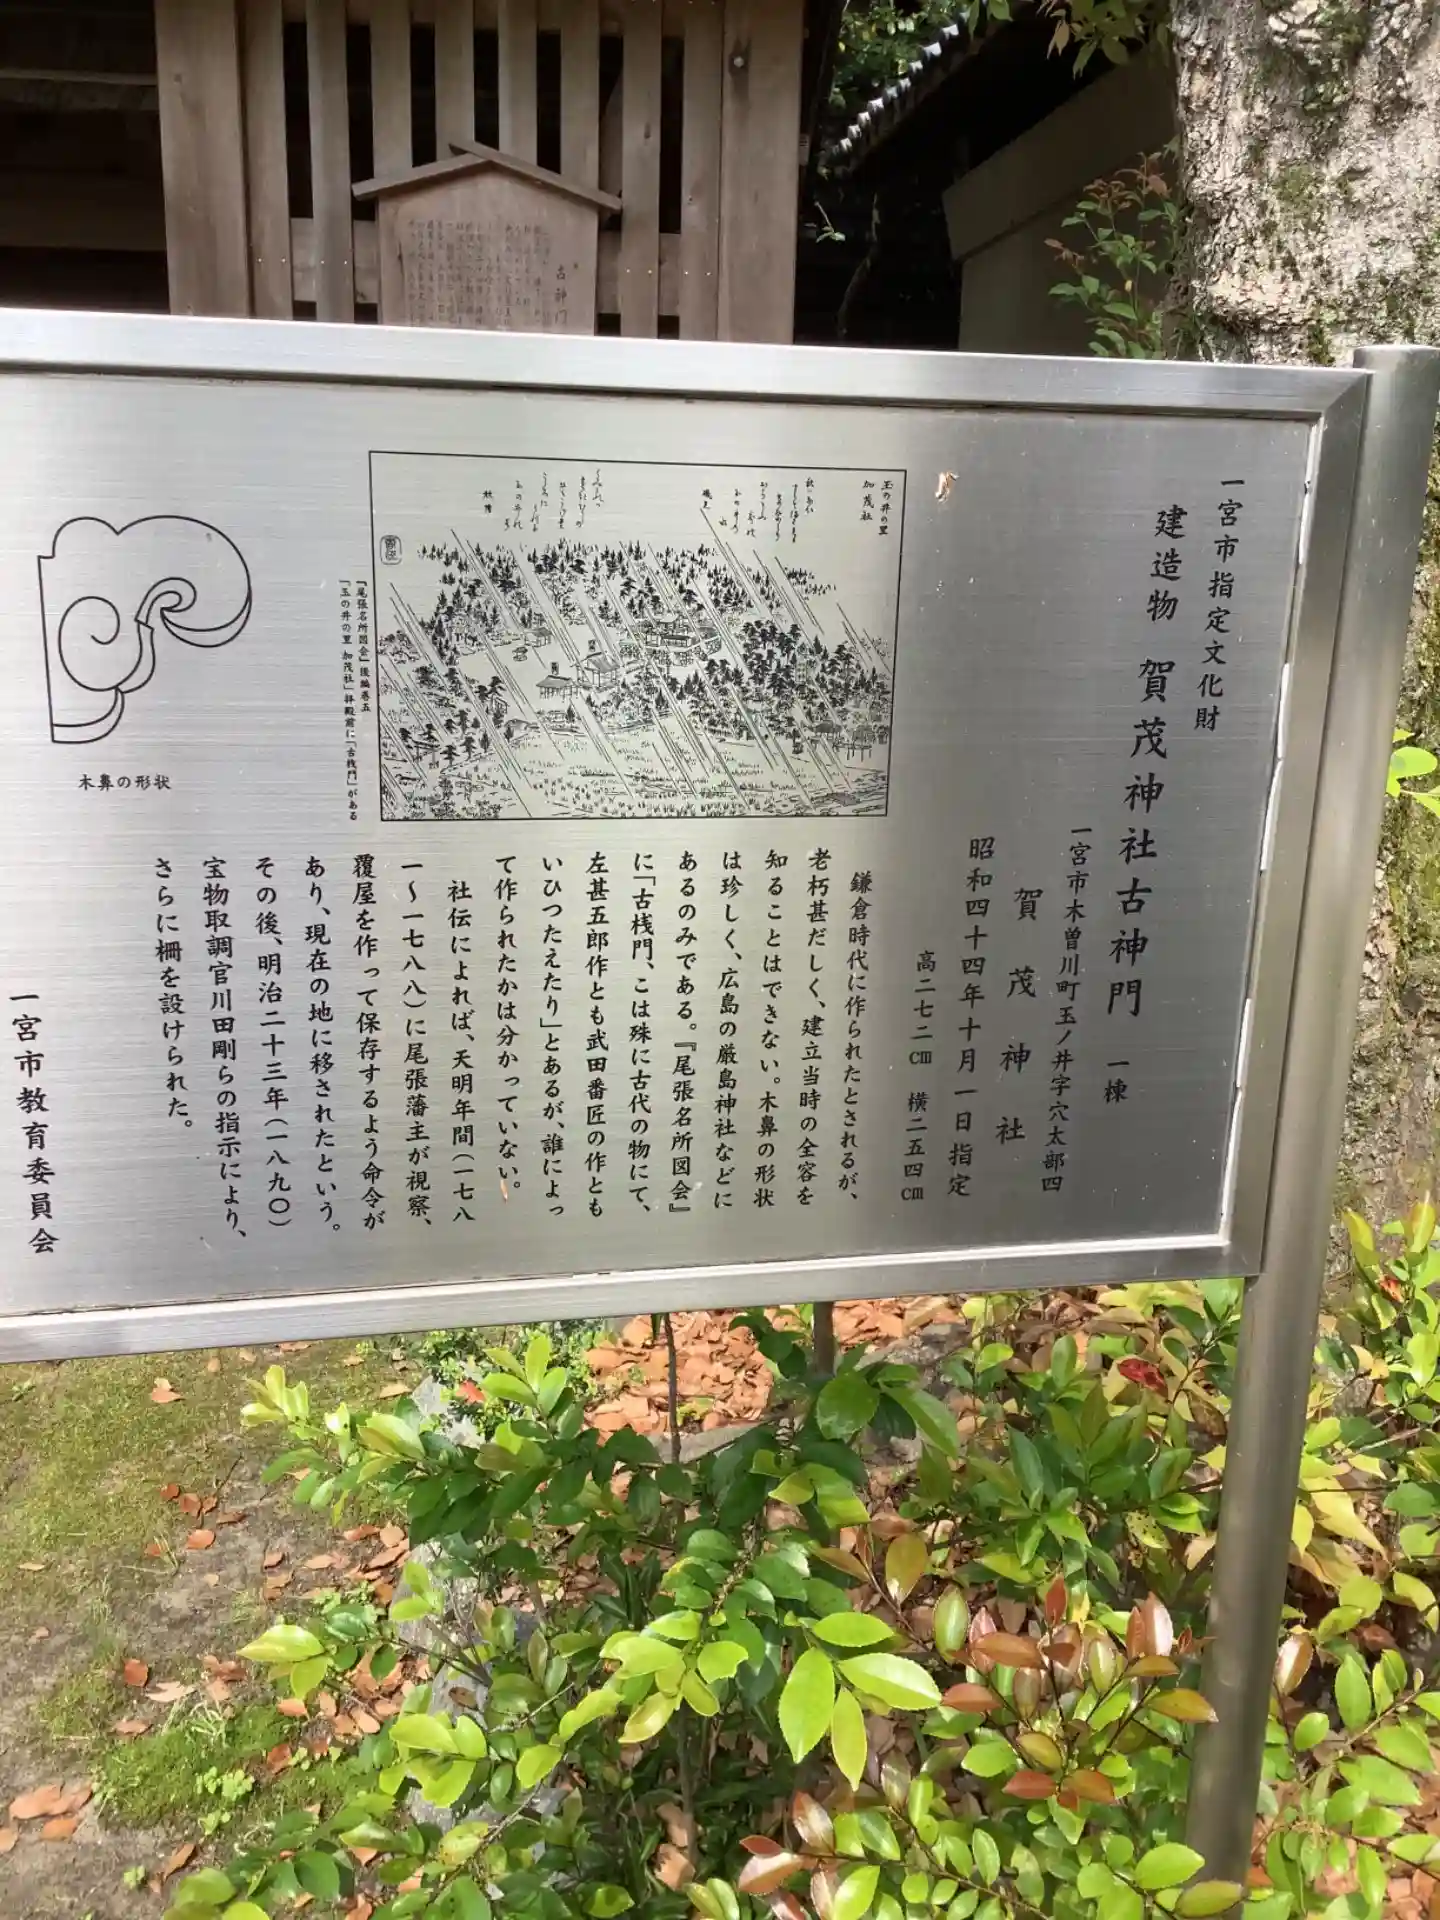 一宮市指定文化財
建造物 賀茂神社古神門 一棟
一宮市木曽川町玉ノ井字穴太部四
賀茂神社
昭和四十四年十月一日指定
高二七二cm 横二五四cm
鎌倉時代に作られたとされるが、
老朽甚だしく、建立当時の全容を
知ることはできない。木鼻の形状
は珍しく、広島の厳島神社などに
あるのみである。『尾張名所図会』
に「古桟門、こは殊に古代の物にて、
左甚五郎作とも武田番匠の作とも
いひつたえたり」とあるが、誰によっ
て作られたかは分かっていない。
社伝によれば、天明年間(一七八
一〜一七八八)に尾張藩主が視察、
覆屋を作って保存するよう命令が
あり、現在の地に移されたという。
その後、明治二十三年(一八九〇)
宝物取調官川田剛らの指示により、
さらに柵を設けられた。
一宮市教育委員会
玉の井の里
加茂社
『尾張名所図会』後編巻五
「玉の井の里 加茂社」拝殿前に「古桟門」がある
木鼻の形状
古神門